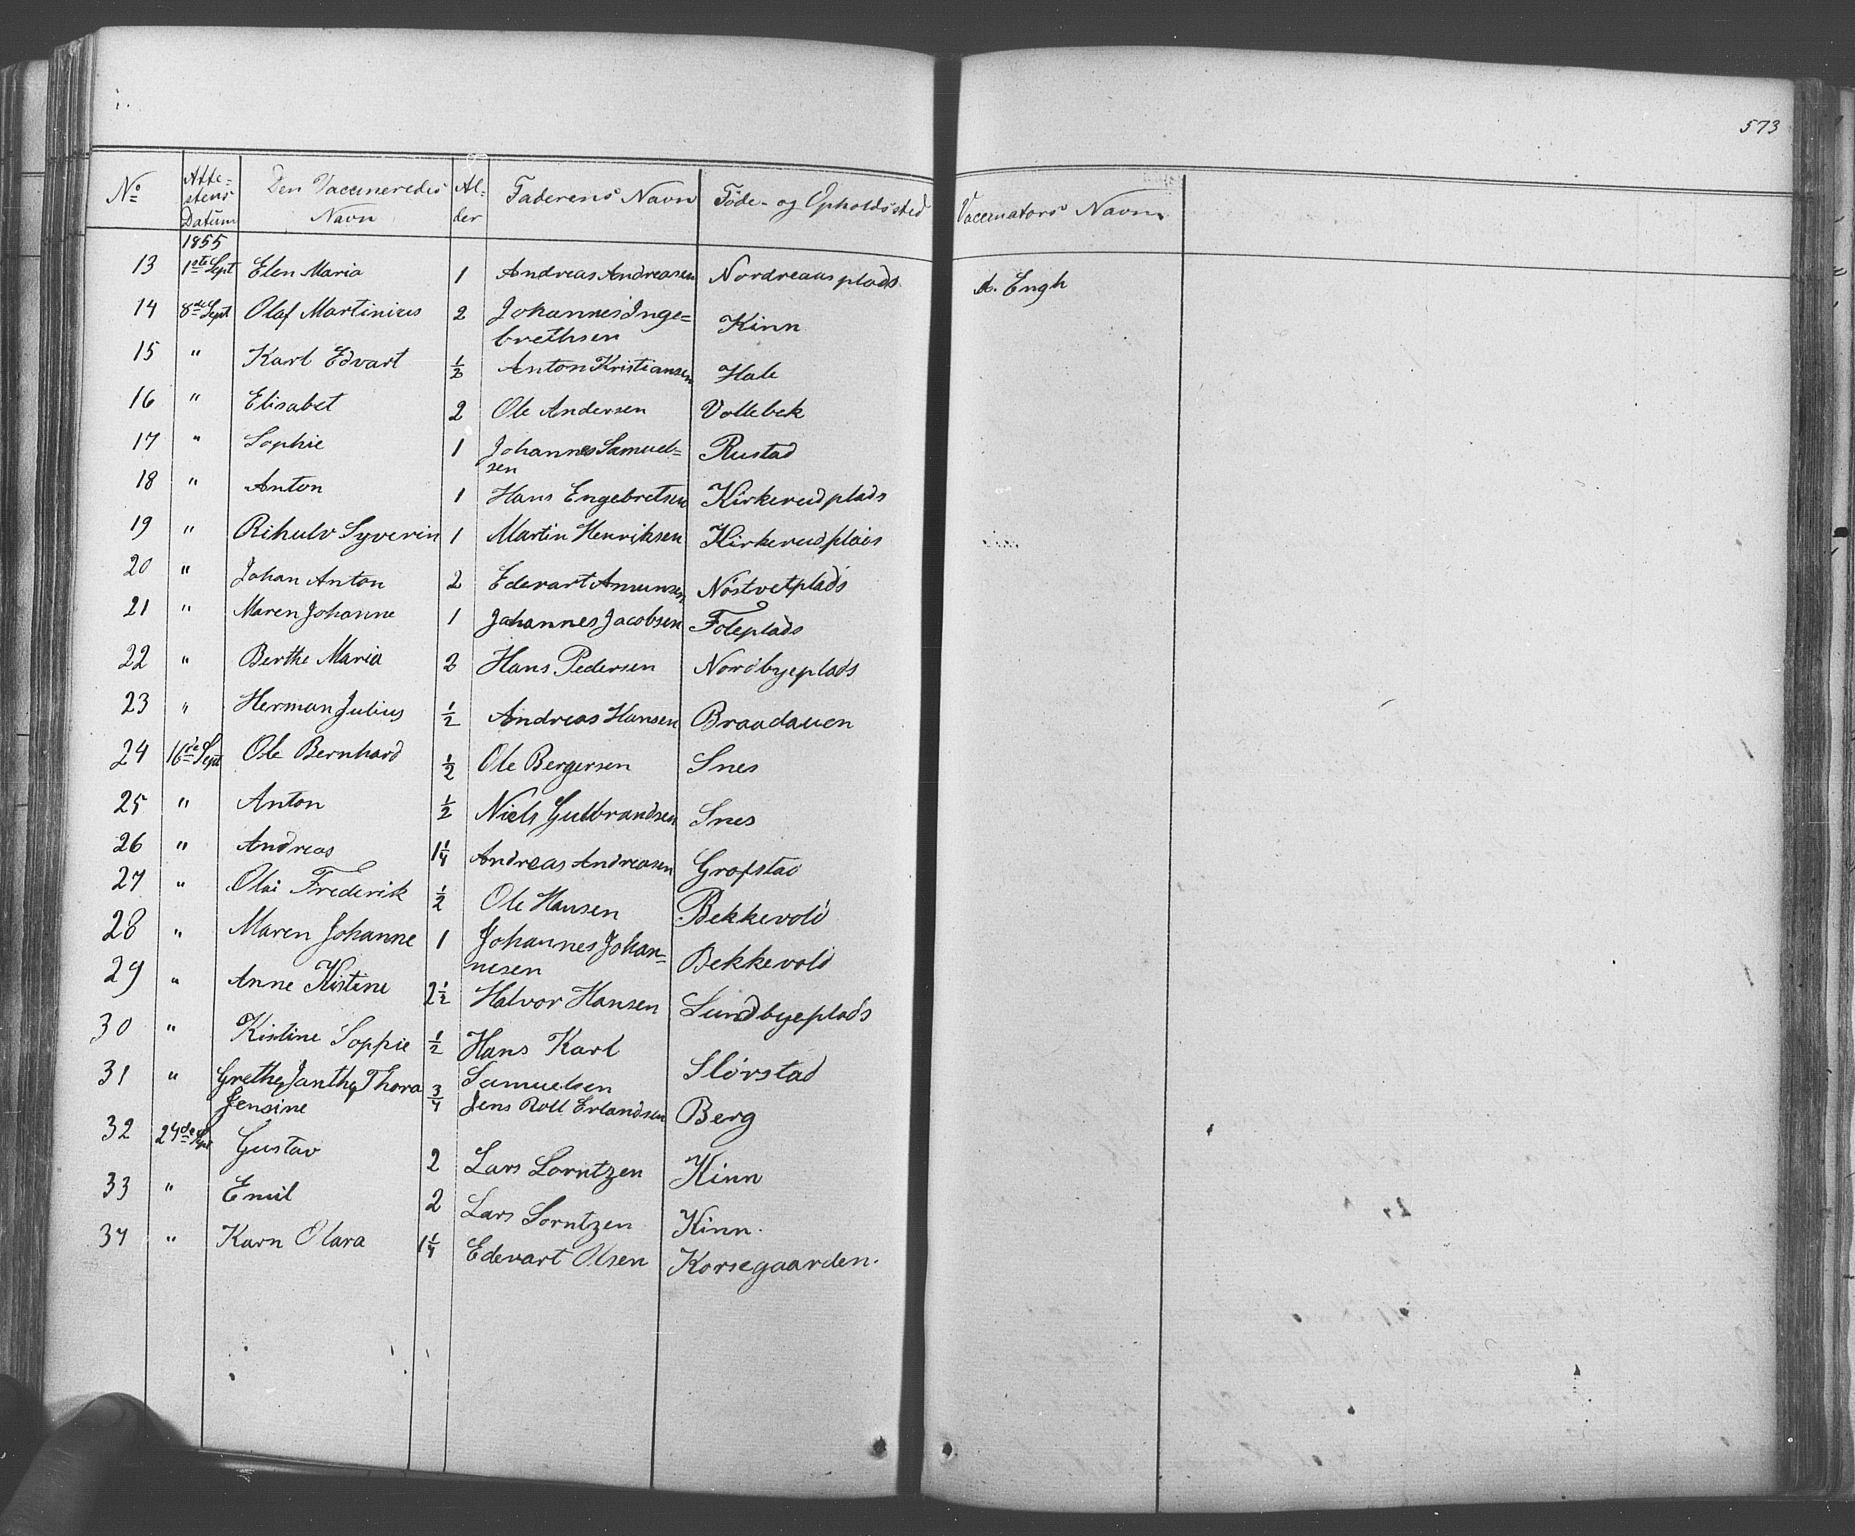 573
No Atte- stens Datum Den Vaccineredes Navn Al- der Faderens Navn Føde- og Opholdssted Vaccinators Navn
1855
13 1ste Sept Elen Maria 1 Andreas Andreasen Nordreaasplads A. Engh
14 8de Sept Olaf Martinius 2 Johannes Inge=
brethsen Kinn
15 " Karl Edvart 1/2 Anton Kristiansen Hale
16 " Elisabet 2 Ole Andersen Vollebek
17 " Sophie 1 Johannes Samuel=
sen Rustad
18 " Anton 1 Hans Engebretsen Kirkerudplads
19 " Rihulv Syverin 1 Martin Henriksen Kirkerudplads
20 " Johan Anton 2 Edevart Amunsen Nöstvetplads
21 " Maren Johanne 1 Johannes Jacobsen Foleplads
22 " Berthe Maria 2 Hans Pedersen Nordbyeplads
23 " Herman Julius 1/2 Andreas Hansen Braadauen
24 16de Sept Ole Bernhard 1/2 Ole Bergersen Snes
25 " Anton 1/2 Niels Gulbrandsen Snes
26 " Andreas 1 1/4 Andreas Andreasen Grofstad
27 " Olai Frederik 1/2 Ole Hansen Bekkevold
28 " Maren Johanne 1 Johannes Johan=
nesen Bekkevold
29 " Anne Kistine 2 1/2 Halvor Hansen Sundbyeplads
30 " Kistine Soppie 1/2 Hans Karl
Samuelsen Slörstad
31 " Grethe Janthe Thora
Jensine 3/4 Jens Roll Erlandsen Berg
32 24de Sept Gustav 2 Lars Lorntzen Kinn
33 " Emil 2 Lars Lorntzen Kinn.
34 " Karn Olara 1 1/4 Edevart Olsen Korsegaarden.